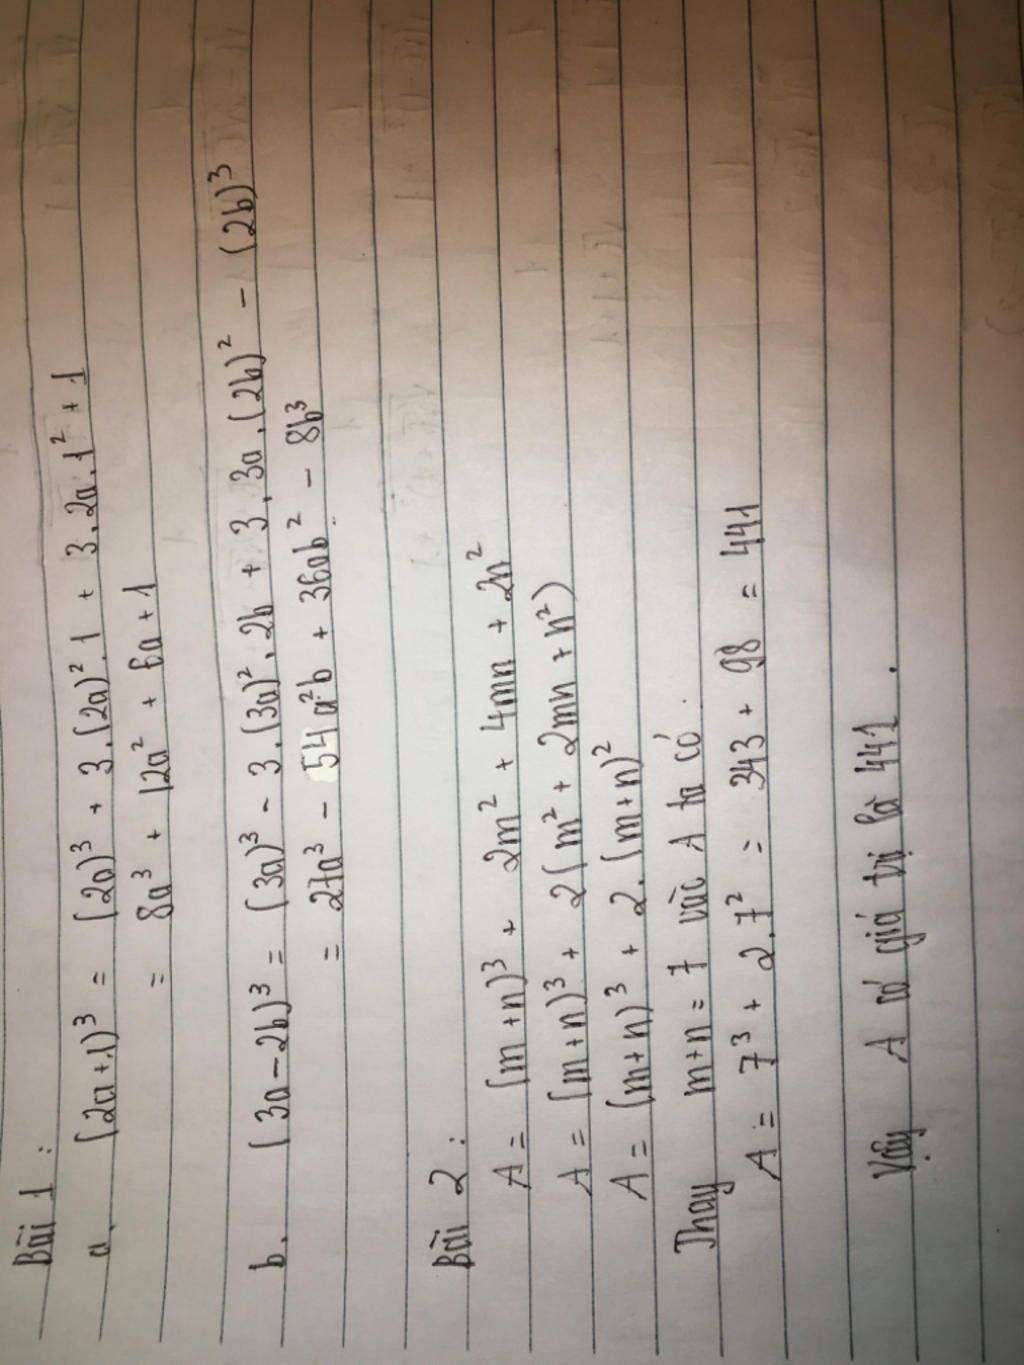 Bài 1 :
a. (2a+1)³ = (2a)³ + 3.(2a)².1 + 3.2a.1² + 1
= 8a³ + 12a² + 6a + 1
b. (3a-2b)³ = (3a)³ - 3.(3a)².2b + 3.3a.(2b)² - (2b)³
= 27a³ - 54a²b + 36ab² - 8b³
Bài 2 :
A = (m+n)³ + 2m² + 4mn + 2n²
A = (m+n)³ + 2(m² + 2mn + n²)
A = (m+n)³ + 2.(m+n)²
Thay m+n = 7 vào A ta có.
A = 7³ + 2.7² = 343 + 98 = 441
Vậy A có giá trị là 441.